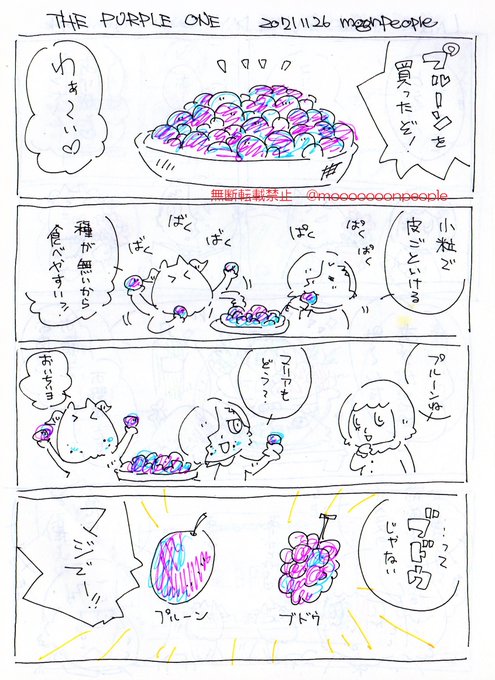 THE PURPLE ONE 2021.11.26 moonpeople
プルーンを
買ったぞ!
わぁ~い♡
無断転載禁止 @mooooooonpeople
小粒で
皮ごといける
ぱく
ぱく
ぱく
ばく
ばく
ばく
種が無いから
食べやすいっ!
プルーンね
マリアも
どう?
おいちいヨ
…って
ブドウ
じゃない
プルーン
ブドウ
マジでー!!